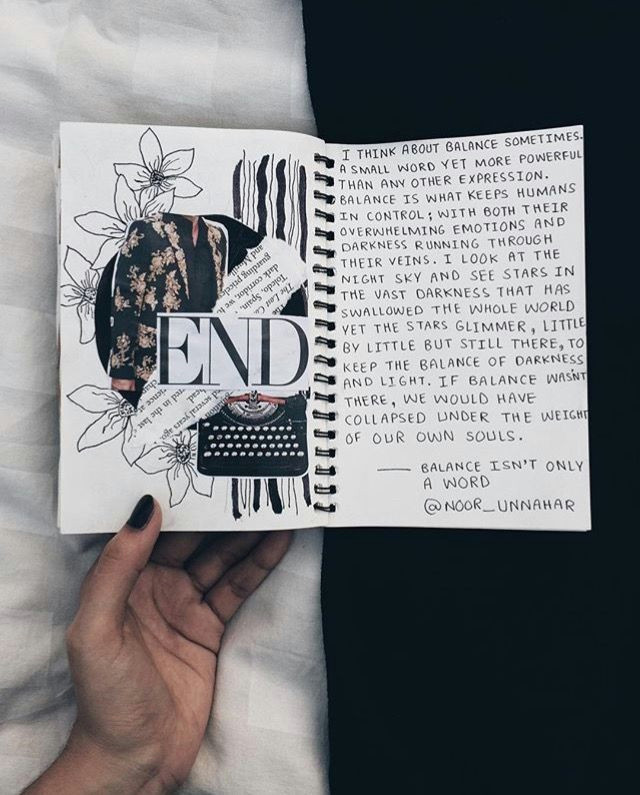 The Last
Toledo, Spain
dark corridor, we
guarding priceless
and
END
several years ago,
red in the last
dience
I THINK ABOUT BALANCE SOMETIMES.
A SMALL WORD YET MORE POWERFUL
THAN ANY OTHER EXPRESSION.
BALANCE IS WHAT KEEPS HUMANS
IN CONTROL; WITH BOTH THEIR
OVERWHELMING EMOTIONS AND
DARKNESS RUNNING THROUGH
THEIR VEINS. I LOOK AT THE
NIGHT SKY AND SEE STARS IN
THE VAST DARKNESS THAT HAS
SWALLOWED THE WHOLE WORLD
YET THE STARS GLIMMER, LITTLE
BY LITTLE BUT STILL THERE, TO
KEEP THE BALANCE OF DARKNESS
AND LIGHT. IF BALANCE WASN'T
THERE, WE WOULD HAVE
COLLAPSED UNDER THE WEIGHT
OF OUR OWN SOULS.
— BALANCE ISN'T ONLY
A WORD
@NOOR_UNNAHAR